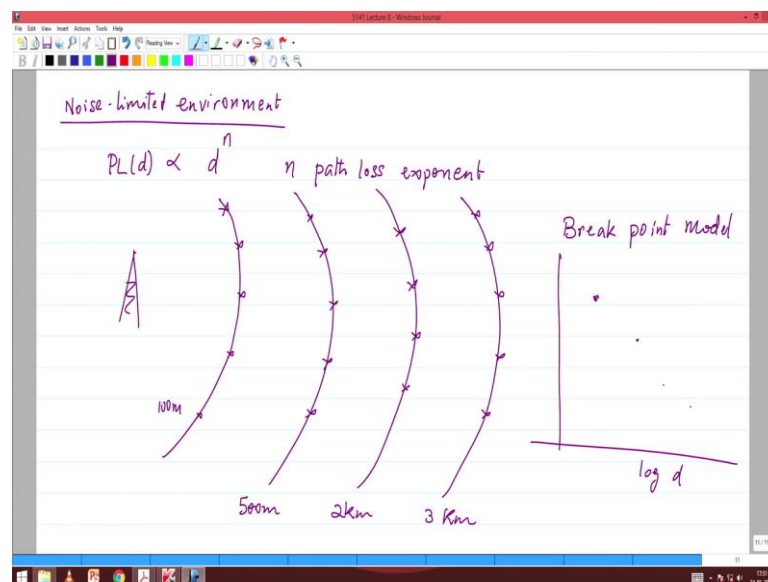 5141 Lecture 8 - Windows Journal
File Edit View Insert Actions Tools Help
Reading View
B I
Noise-limited environment
PL(d) ∝ d^n n path loss exponent
Break point model
100m
500m
2km
3 Km
log d
11 / 11
11
17:51